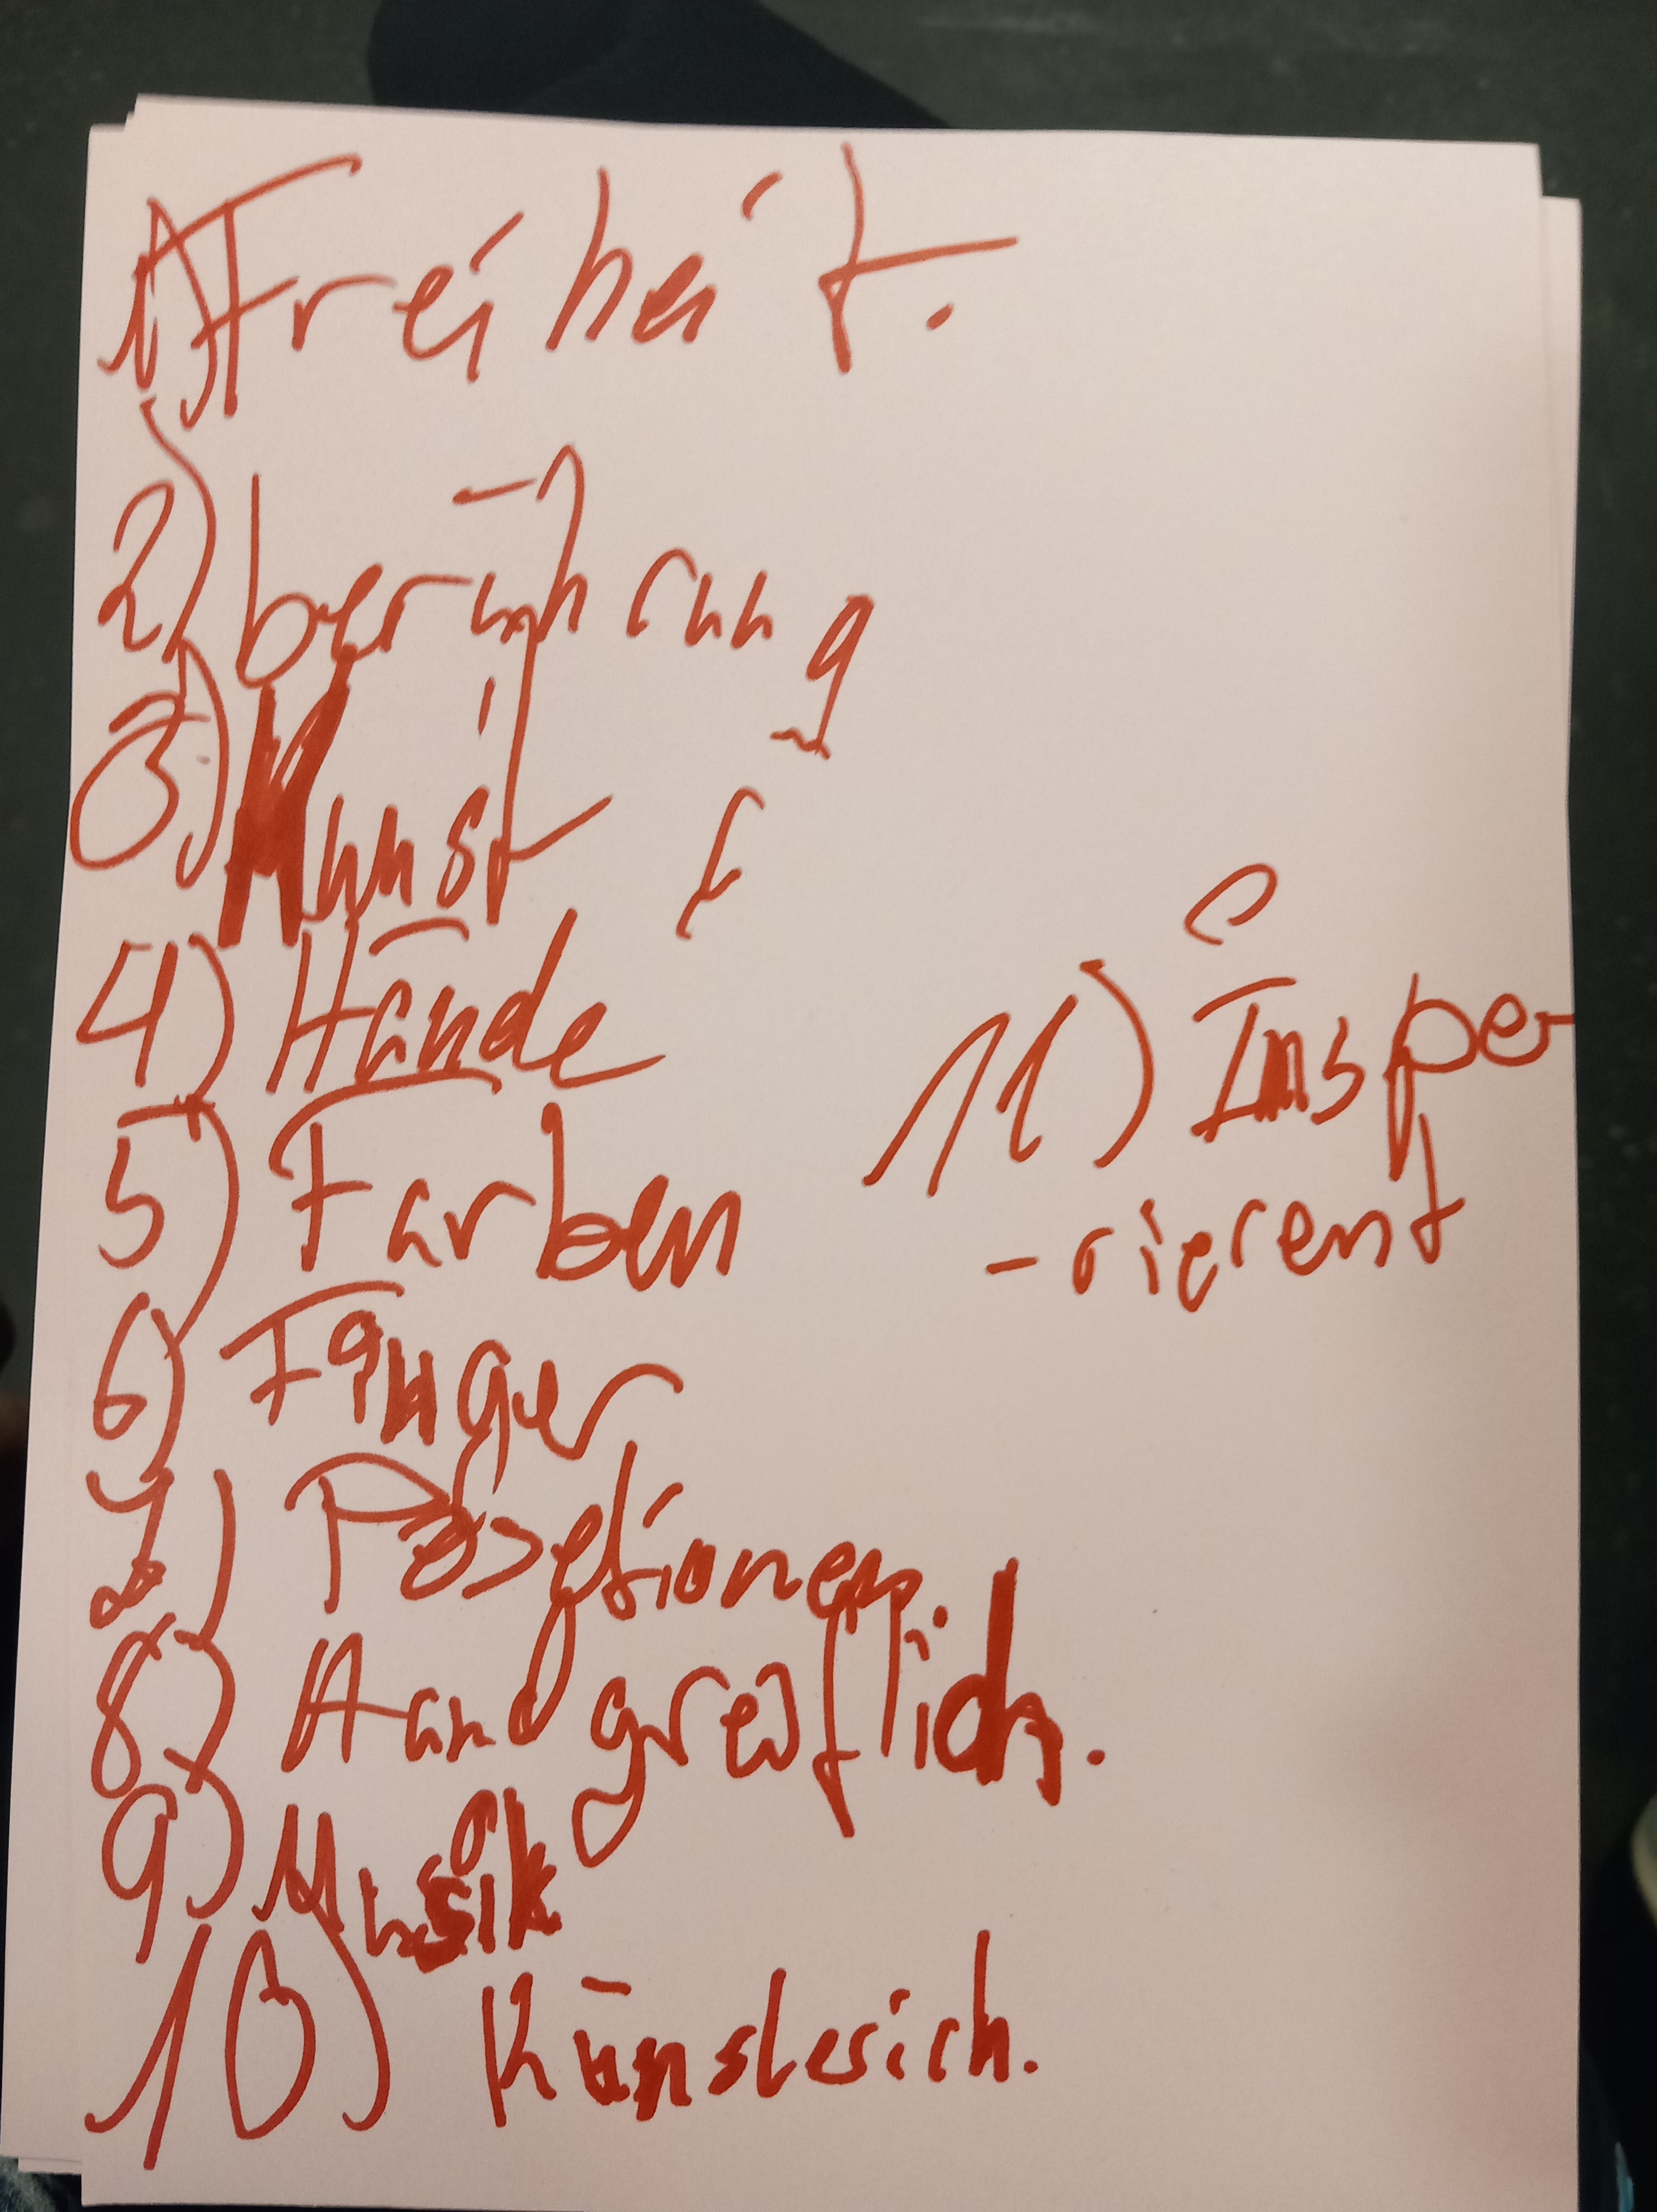 1) Freiheit.
2) berührung
3) Kunst
4) Hände
5) Farben
6) Finger
7) Posetionen.
8) Handgreiflich.
9) Musik
10) Künslesich.
11) Inspe-
-rierent